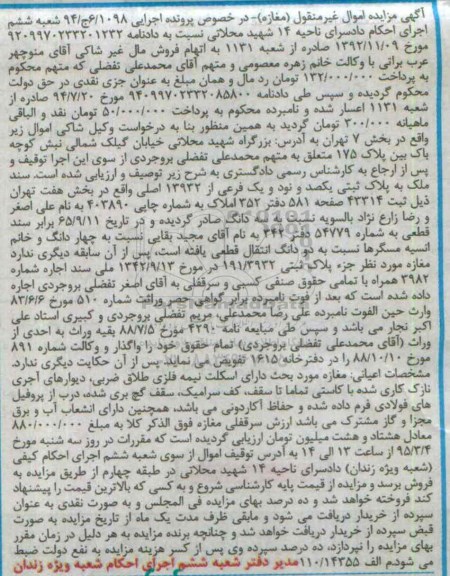 آگهی مزایده اموال غیرمنقول (مغازه)- در خصوص پرونده اجرایی ۶/۱۰۹۸ج/۹۴ شعبه ششم
اجرای احکام دادسرای ناحیه ۱۴ شهید محلاتی نسبت به دادنامه ۹۲۰۹۹۷۰۲۳۳۲۰۱۲۳۲
مورخ ۱۳۹۲/۱۱/۰۹ صادره از شعبه ۱۱۳۱ به اتهام فروش مال غیر شاکی آقای منوچهر
عرب براتی با وکالت خانم زهره معصومی و متهم آقای محمدعلی تفضلی که متهم محکوم
به پرداخت ۱۳۲/۰۰۰/۰۰۰ تومان رد مال و همان مبلغ به عنوان جزی نقدی در حق دولت
محکوم گردیده و سپس طی دادنامه ۹۴۰۹۹۷۰۲۳۳۲۰۸۵۸۰۰ مورخ ۹۴/۷/۲۰ صادره از
شعبه ۱۱۳۱ اعسار شده و نامبرده محکوم به پرداخت ۵۰/۰۰۰/۰۰۰ تومان نقد و الباقی
ماهیانه ۳۰۰/۰۰۰ تومان گردید به همین منظور بنا به درخواست وکیل شاکی اموال زیر
واقع در بخش ۷ تهران به آدرس: بزرگراه شهید محلاتی خیابان گیلک شمالی نبش کوچه
پاک بین پلاک ۱۷۵ متعلق به متهم محمدعلی تفضلی بروجردی از سوی این اجرا توقیف و
پس از ارجاع به کارشناس رسمی دادگستری به شرح زیر توصیف و ارزیابی شده است. سند
ملک به پلاک ثبتی یکصد و نود و یک فرعی از ۱۳۹۳۲ اصلی واقع در بخش هفت تهران
ذیل ثبت ۴۳۳۱۴ صفحه ۵۸۱ دفتر ۳۵۲ املاک به شماره چاپی ۴۰۳۸۹۰ به نام علی اصغر
و رضا زارع نژاد بالسویه نسبت به شش دانگ صادر گردیده و در تاریخ ۶۵/۹/۱۱ برابر سند
قطعی به شماره ۵۴۷۷۹ دفتر ۳۴۴ به نام آقای مجید بقایی نسبت به چهار دانگ و خانم
انسیه مسگرها نسبت به دو دانگ انتقال قطعی یافته است، پس از آن سابقه دیگری ندارد
مغازه مورد نظر جزء پلاک ثبتی ۱۹۱/۳۹۳۲ در مورخ ۱۳۴۲/۹/۱۳ ملی سند اجاره شماره
۳۹۸۲ همراه با تمامی حقوق صنفی کسبی و سرقفلی به آقای اصغر تفضلی بروجردی اجاره
داده شده است که بعد از فوت نامبرده برابر گواهی حصر وراثت شماره ۵۱۰ مورخ ۸۳/۶/۶
وارث حین الفوت نامبرده علی رضا محمدعلی، مریم تفضلی بروجردی و کبیری استاد علی
اکبر نجار می باشد و سپس طی مبایعه نامه ۴۲۹۰ مورخ ۸۸/۷/۵ بقیه وراث به احدی از
وراث (آقای محمدعلی تفضلی بروجردی) تمام حقوق خود را واگذار و وکالت شماره ۸۹۱
مورخ ۸۸/۱۰/۱۰ را در دفترخانه ۱۶۱۵ تفویض می نماید. پس از آن حکایت دیگری ندارد.
مشخصات اعیانی: مغازه مورد بحث دارای اسکلت نیمه فلزی طلاق ضربی، دیوارهای آجری
نازک کاری شده با کاستی تماما تا سقف، کف سرامیک، سقف گچ بری شده، درب از پروفیل
های فولادی فرم داده شده و حفاظ آکاردئونی می باشد، همچنین دارای انشعاب آب و برق
مجزا و گاز مشترک می باشد ارزش سرقفلی مغازه فوق الذکر کلا به مبلغ ۸۸۰/۰۰۰/۰۰۰
معادل هشتاد و هشت میلیون تومان ارزیابی گردیده است که مقررات در روز سه شنبه مورخ
۹۵/۳/۴ از ساعت ۱۳ الی ۱۴ به آدرس توقیف اموال از سوی شعبه ششم اجرای احکام کیفی
(شعبه ویژه زندان) دادسرای ناحیه ۱۴ شهید محلاتی در طبقه چهارم از طریق مزایده به
فروش برسد و مزایده از قیمت پایه کارشناسی شروع و به کسی که بالاترین قیمت را پیشنهاد
کند فروخته خواهد شد و ده درصد بهای مزایده فی المجلس و به صورت نقدی به عنوان
سپرده از خریدار دریافت می شود و مابقی ظرف مدت یک ماه از تاریخ مزایده به صورت
قبض سپرده از خریدار دریافت خواهد شد و چنانچه برنده مزایده به هر دلیل در زمان مقرر
بهای مزایده را نپردازد، ده درصد سپرده وی پس از کسر هزینه مزایده به نفع دولت ضبط
می شود. م الف ۱۱۰/۱۴۳۵۵ مدیر دفتر شعبه ششم اجرای احکام شعبه ویژه زندان